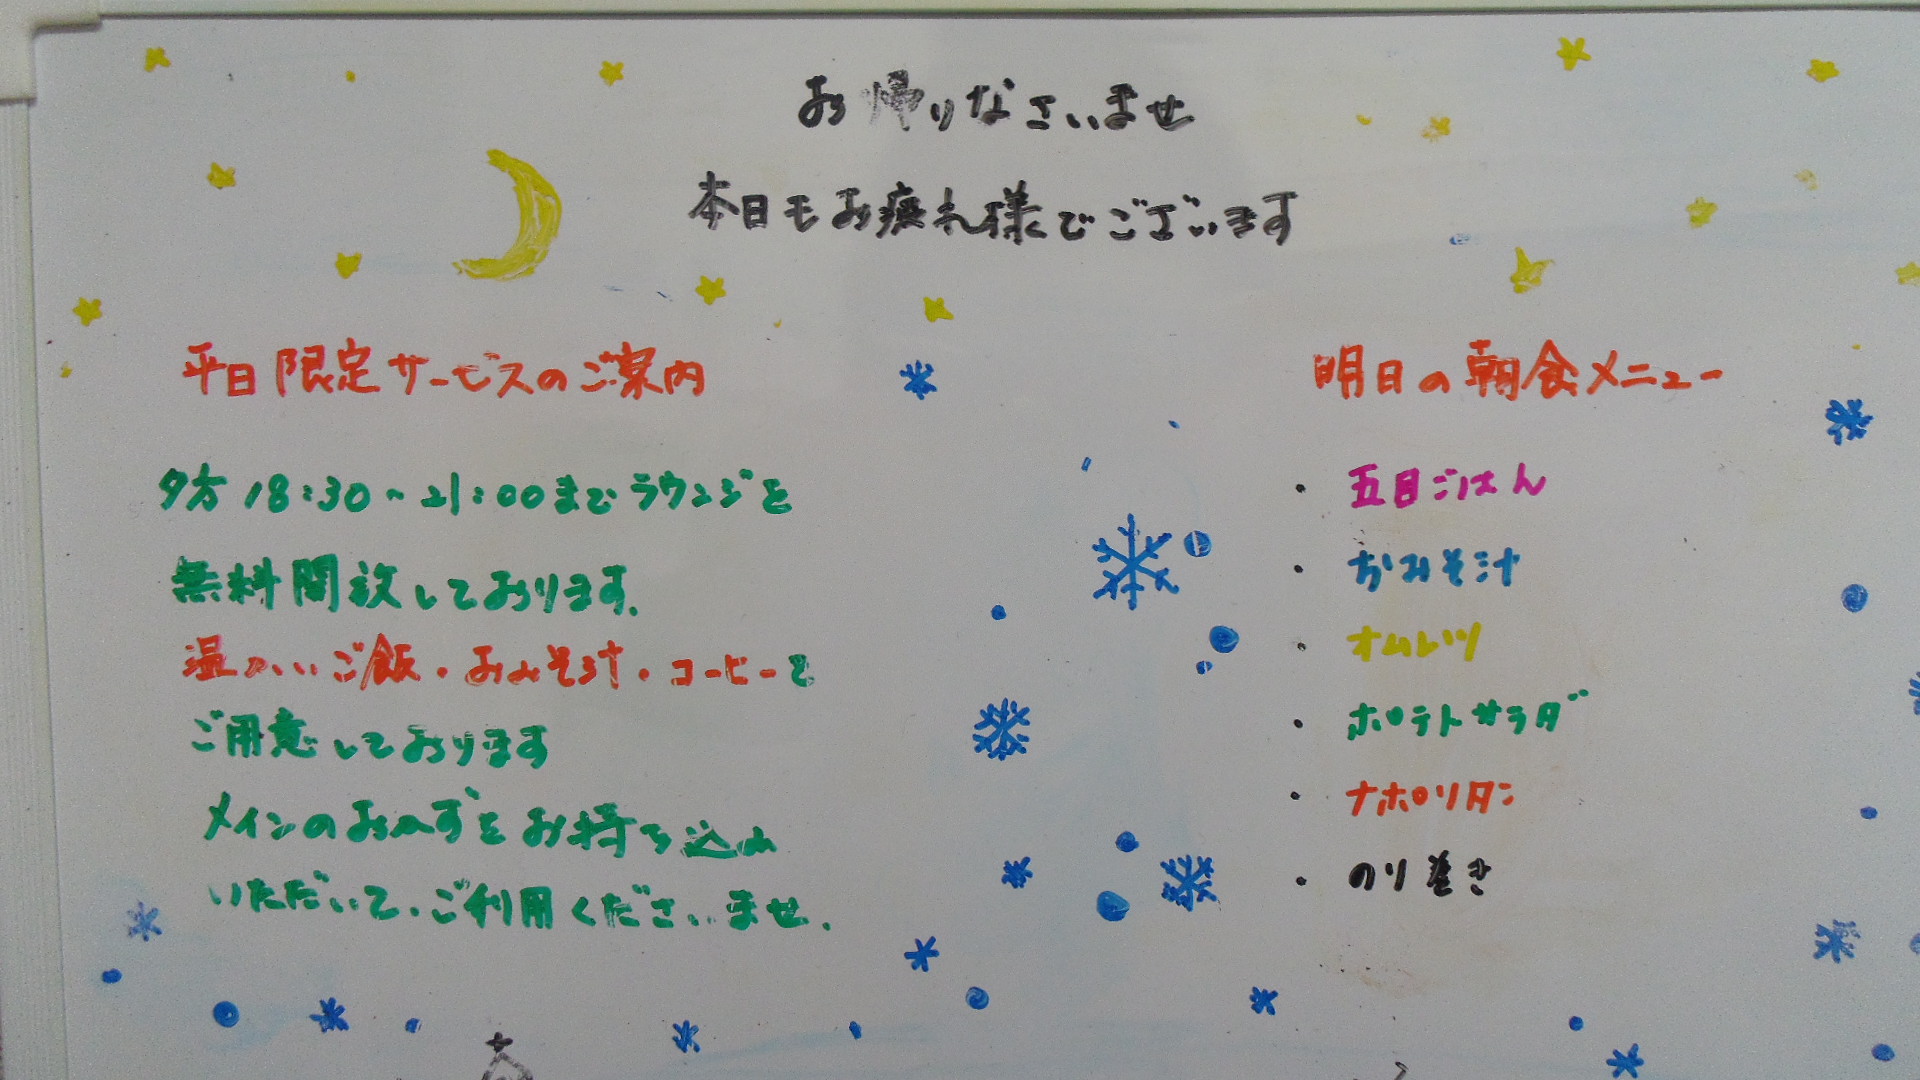 お帰りなさいませ
本日もお疲れ様でございます
平日限定サービスのご案内
夕方18:30~21:00までラウンジを
無料開放しております。
温かいご飯・おみそ汁・コーヒーを
ご用意しております
メインのおかずをお持ち込み
いただいて、ご利用くださいませ。
明日の朝食メニュー
・五目ごはん
・おみそ汁
・オムレツ
・ポテトサラダ
・ナポリタン
・のり巻き